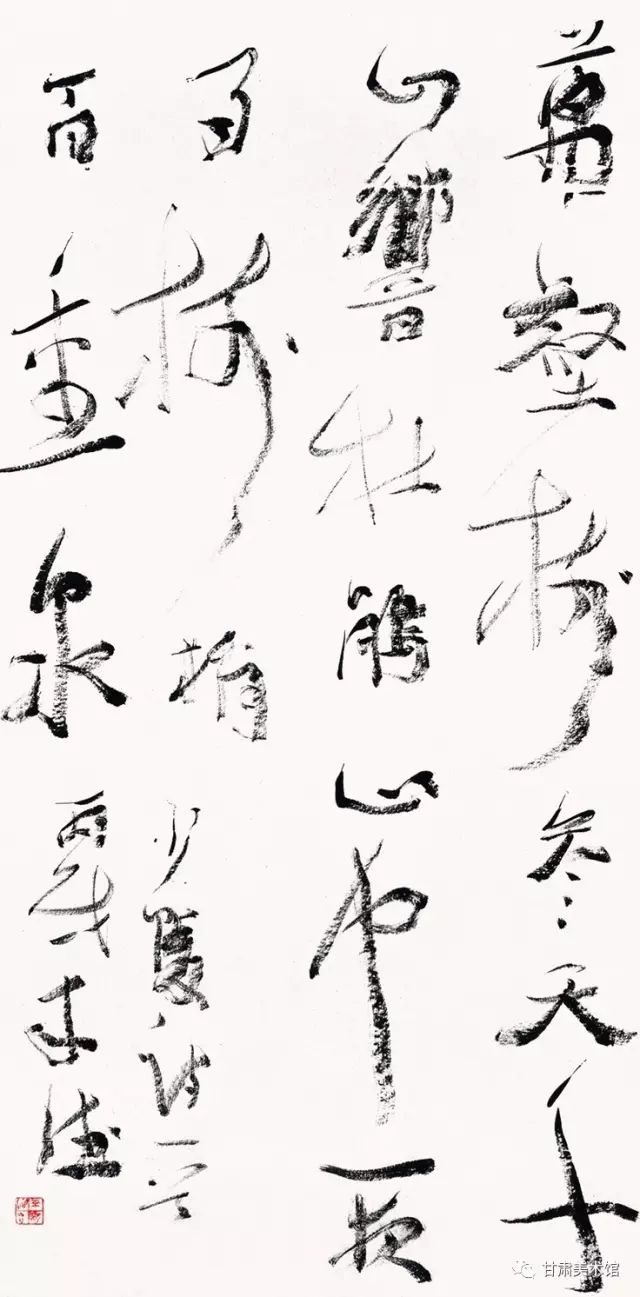 萬壑樹参天千
山響杜鵑山中一夜
雨樹梢
百重泉
少陵詩一首
丙戌
甘肃美术馆